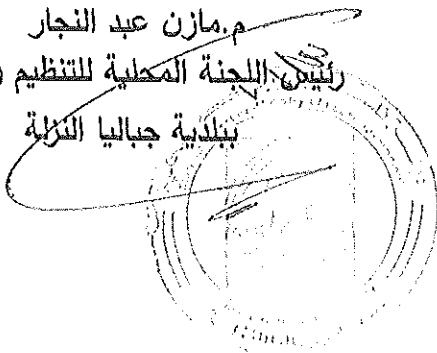 م.مازن عبد النجار
رئيس اللجنة المحلية للتنظيم (
ببلدية جباليا النزلة